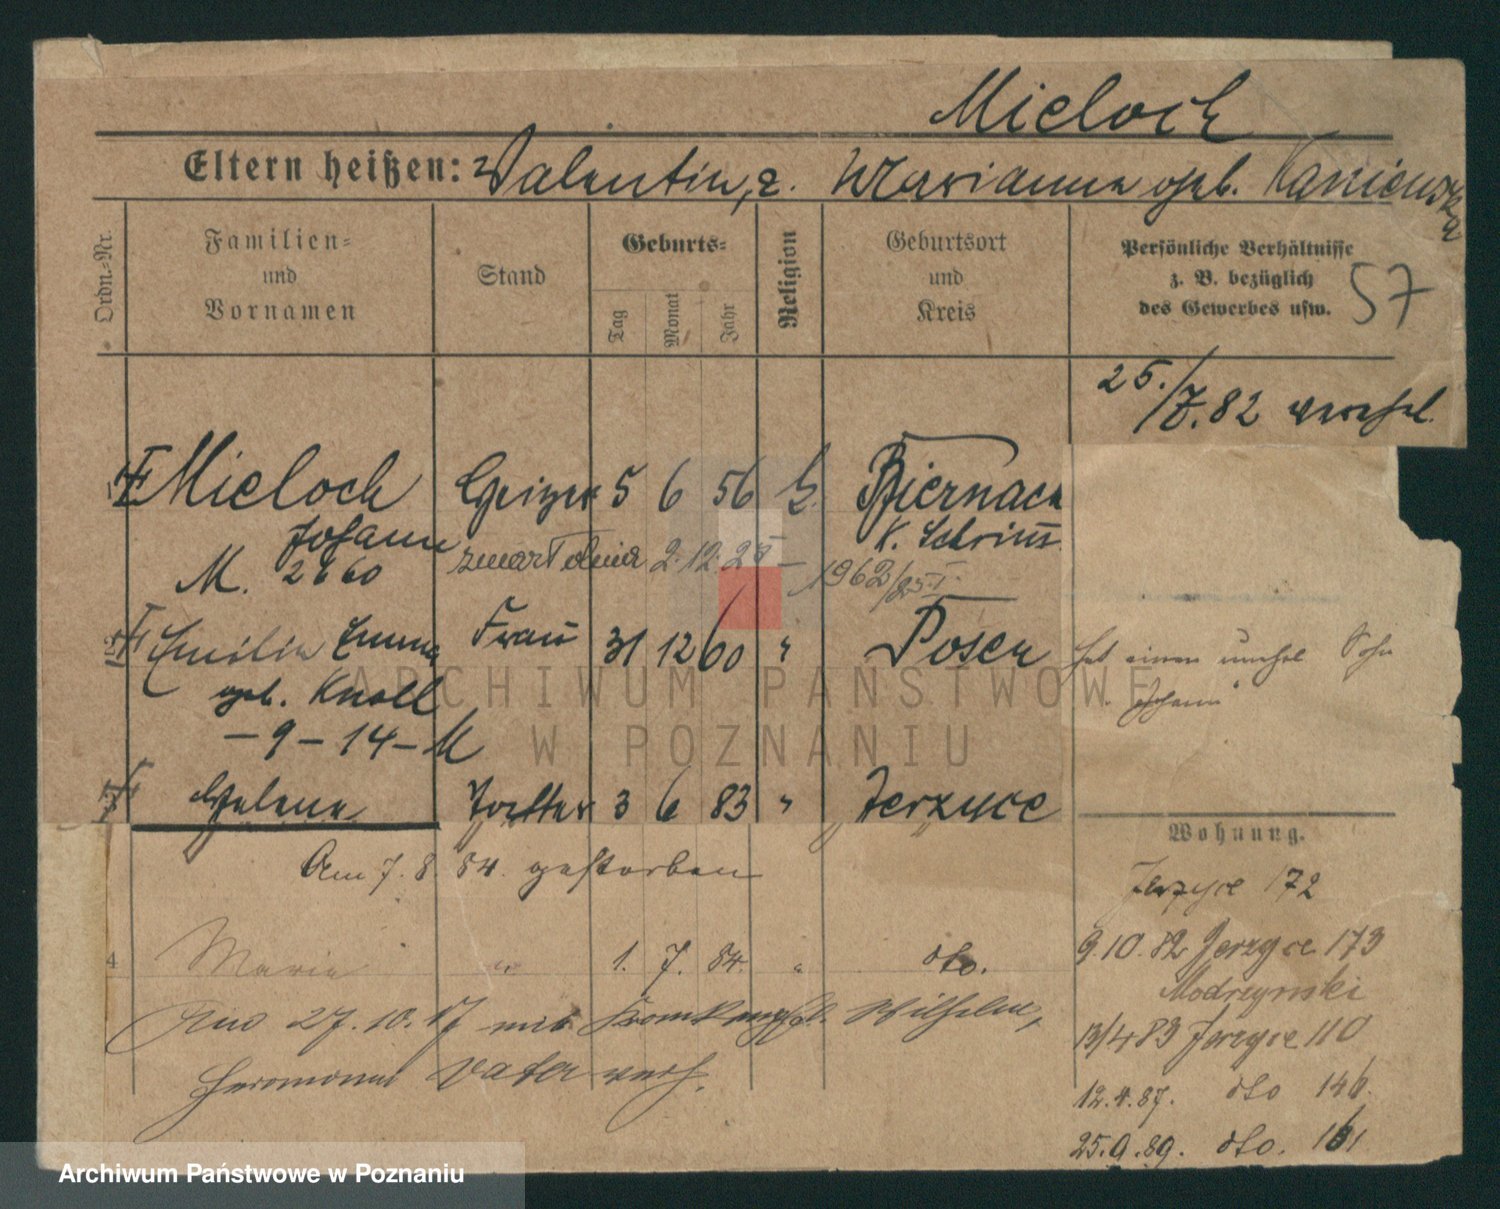 Mieloch
Eltern heißen: Valentin, u. Marianna geb. Kanienska
Ordn.-Nr.
Familien-
und
Vornamen
Stand
Geburts-
Tag
Monat
Jahr
Religion
Geburtsort
und
Kreis
Persönliche Verhältnisse
z. B. bezüglich
des Gewerbes usw.
57
25./7.82 verehel.
Mieloch Heizer 5 6 56 k. Biernack
Johann K. Schrim
M. 2660
zmarł dnia 2.12.25 – 1962/25 I.
2 Emilie Emma Frau 31 12 60 " Posen
geb. Knoll
– 9 – 14 – M
hat einen unehel Sohn
"Johann"
Helena Tochter 3 6 83 " Jerzyce
Am 7. 8. 84. gestorben
4 Maria " 1. 7. 84. " dto.
27.10.17 mit Wilhelm,
Hermann Vater verh.
Wohnung.
Jerzyce 172
9.10.82 Jerzyce 173
Modrzynski
13/4 83 Jerzyce 110
12.4.87. dto 146.
25.9.89. dto. 161
ARCHIWUM PAŃSTWOWE
W POZNANIU
Archiwum Państwowe w Poznaniu